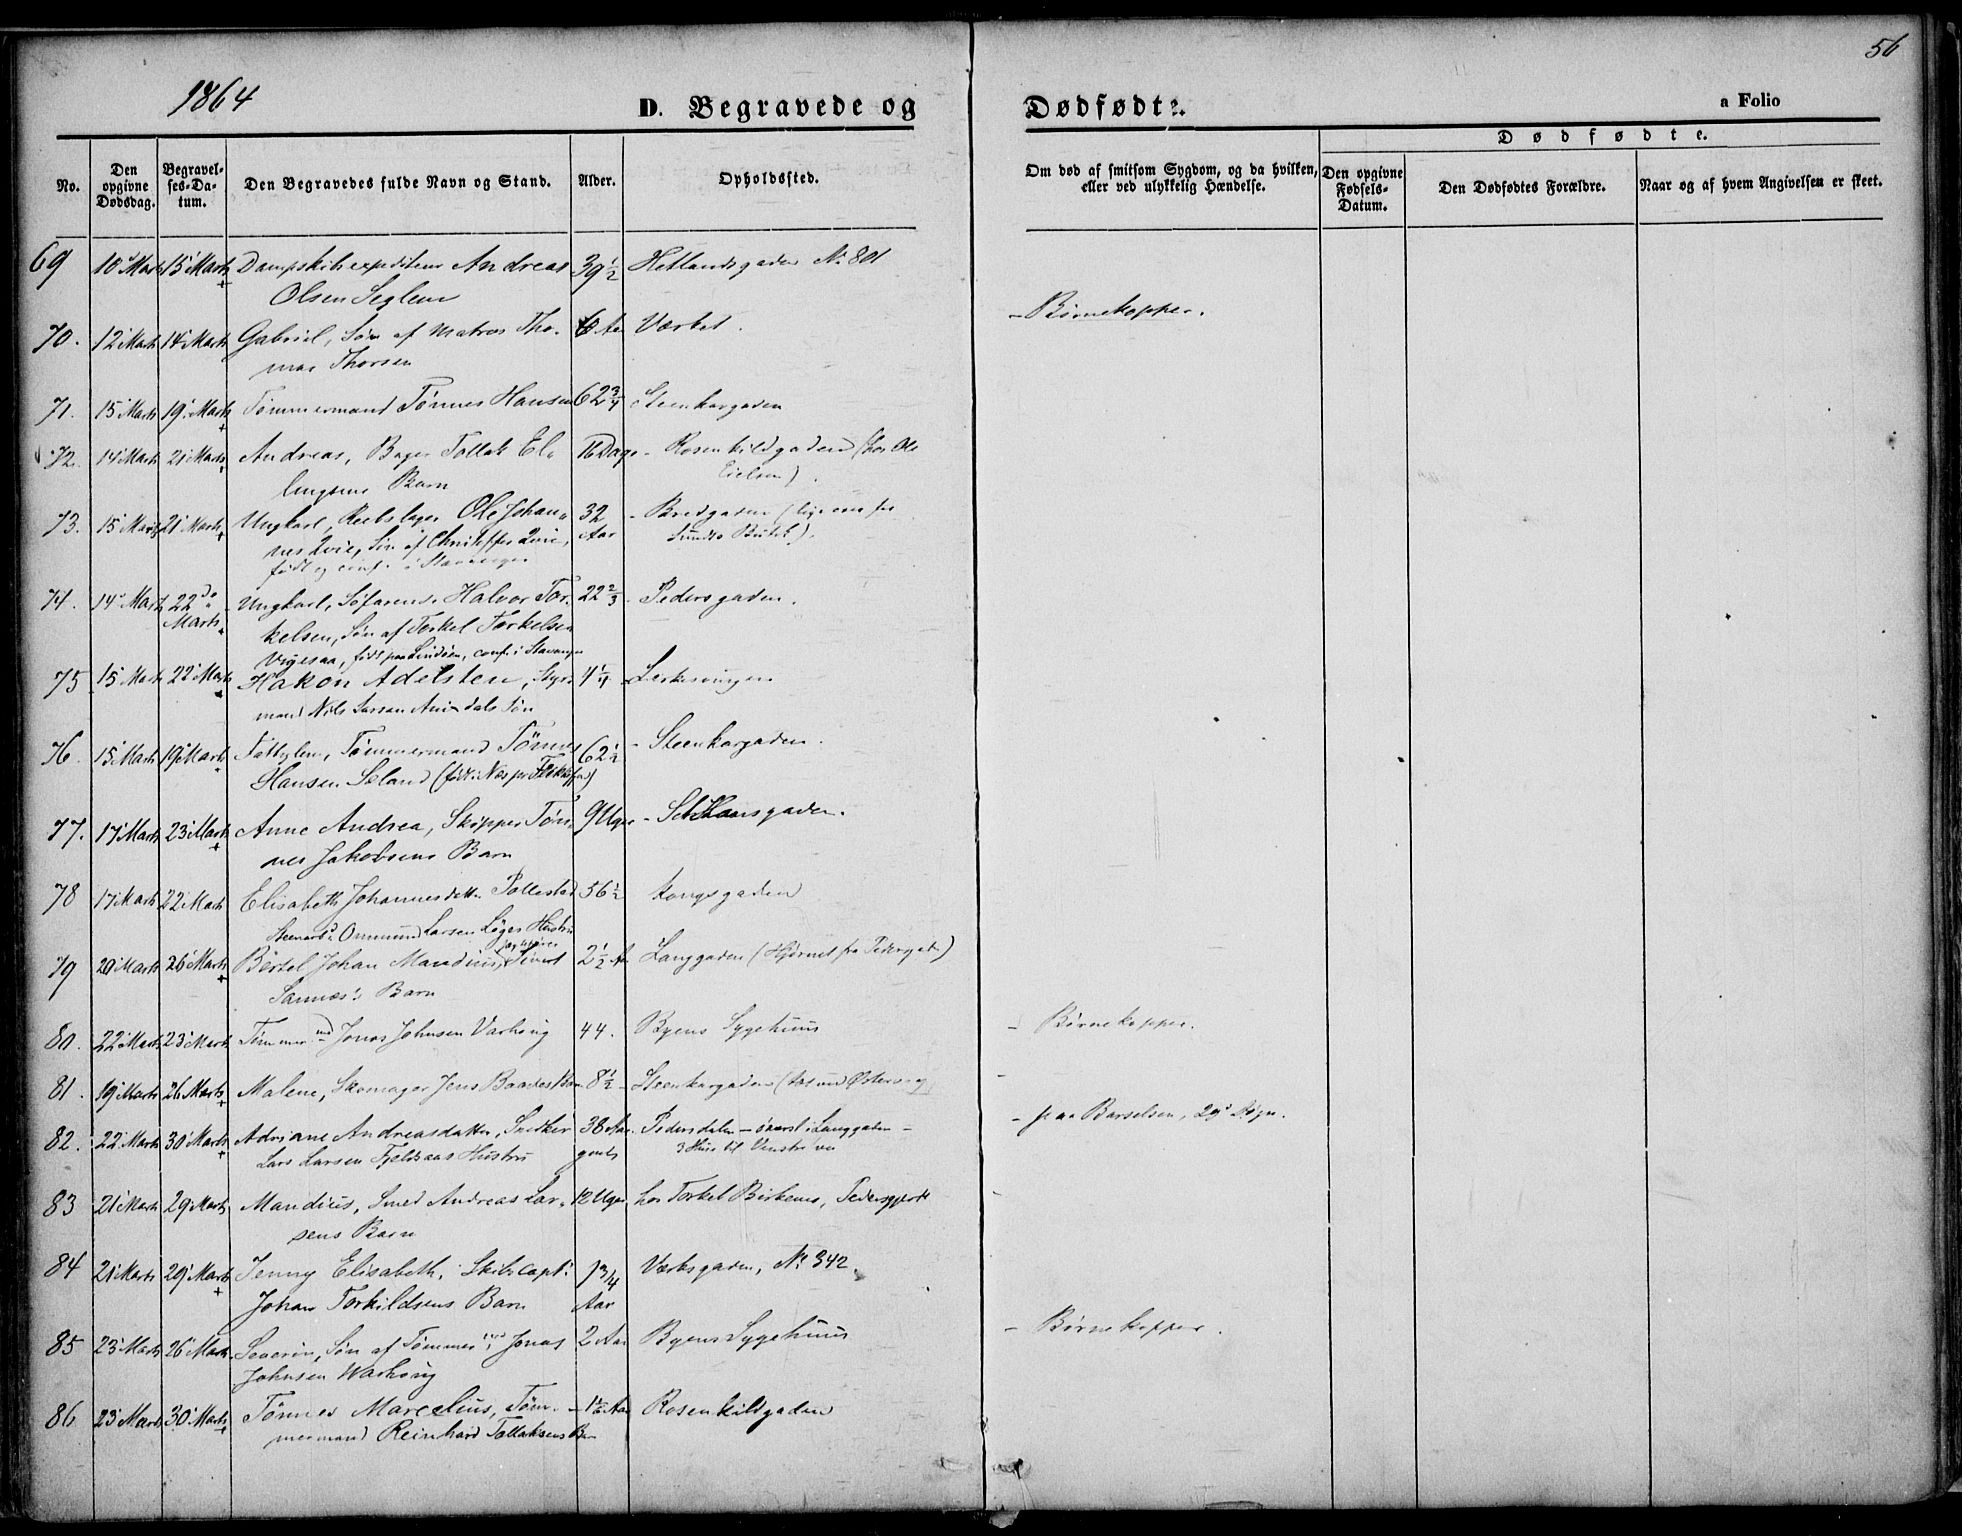 1864
56
D. Begravede og Dødfødte.
a Folio
No.
Den opgivne Dødsdag.
Begravelses-Datum.
Den Begravedes fulde Navn og Stand.
Alder.
Opholdssted.
Om død af smitsom Sygdom, og da hvilken, eller ved ulykkelig Hændelse.
Dødfødte.
Den opgivne Fødsels-Datum.
Den Dødfødtes Forældre.
Naar og af hvem Angivelsen er skeet.
69 10 Marts 15 Marts Dampskibsexpediteur Andreas 39 1/2 Hetlandsgaden No 801
Olsen Seglem
70. 12 Marts 14 Marts Gabriel, Søn af Matros Tho- 6 Aar Værket. - Børnekopper.
mas Thorsen
71. 15 Marts 19 Marts Tømmermand Tønnes Hansen 62 3/4 Steenkargaden
72. 14 Marts 21 Marts Andreas, Bager Tollak El- Dage - Rosenkildgaden (hos Ole
lingsens Barn Eielsen).
73. 15 Marts 21 Marts Ungkarl, Reebslager Ole Johan- 32 - Bredgaden (lige over for
nes Qvie, Søn af Christoffer Qvie, Aar Sundts Butik).
født og conf. i Stavanger
74. 14 Marts 22 Marts Ungkarl, Søfarende Halvor Tor- 22 2/3 - Pedersgaden.
kelsen, Søn af Torkel Torkelsen
Vigesaa, født paa Lindøen, conf. i Stavanger
75 15 Marts 22 Marts Hakon Adelsten, Styr- 4 1/4 - Lerkesvingen
mand Nils Larsen Arendals Søn
76. 15 Marts 19 Marts Fattiglem, Tømmermand Tönnes 62 1/2 - Steenkargaden.
Hansen Seland (født i Næs pr Flekkefjord)
77. 17 Marts 23 Marts Anne Andrea, Skipper Tøn- 9 Uger - St. Hansgaden.
nes Jakobsens Barn
78 17 Marts 22 Marts Elisabeth Johannesdatter Pollestad 56 1/2 Kongsgaden
Ommund Larsen Løges Hustru
79 20 Marts 26 Marts Bertel Johan Mandius, Sivert 2 1/2 Aar Langgaden (Hjørnet fra Pedersgaden)
Sannæs's Barn
80. 22 Marts 23 Marts Tømmermd Jonas Johnsen Varhoug 44. Byens Sygehuus - Børnekopper.
81. 19 Marts 26 Marts Malene, Skomager Jens Baades Barn 8 1/2 - Steenkargaden (tæt ved Østervaag)
82. 22 Marts 30 Marts Adriane Andreasdatter, Snekker 38 Aar Pedersdalen - øverst i Langgaden - - paa Barselsen, 29d Døgn.
Lars Larsen Fjeldsaas Hustru gamle 3 Huse til Venstre
83 21 Marts 29 Marts Mandius, Smed Andreas Lar- 12 Uger hos Torkel Birkenes, Pedersgjerdt
sens Barn
84 21 Marts 29 Marts Jenny Elisabeth, Skibscapt. 1 3/4 Værksgaden, No 342.
Johan Torkildsens Barn Aar
85 23 Marts 26 Marts Severin, Søn af Tømmermd Jonas 2 Aar Byens Sygehuus - Børnekopper.
Johnsen Warhoug
86. 23 Marts 30 Marts Tønnes Marcelius, Tøm- Aar Rosenkildgaden
mermand Reinhard Tollaksens Barn